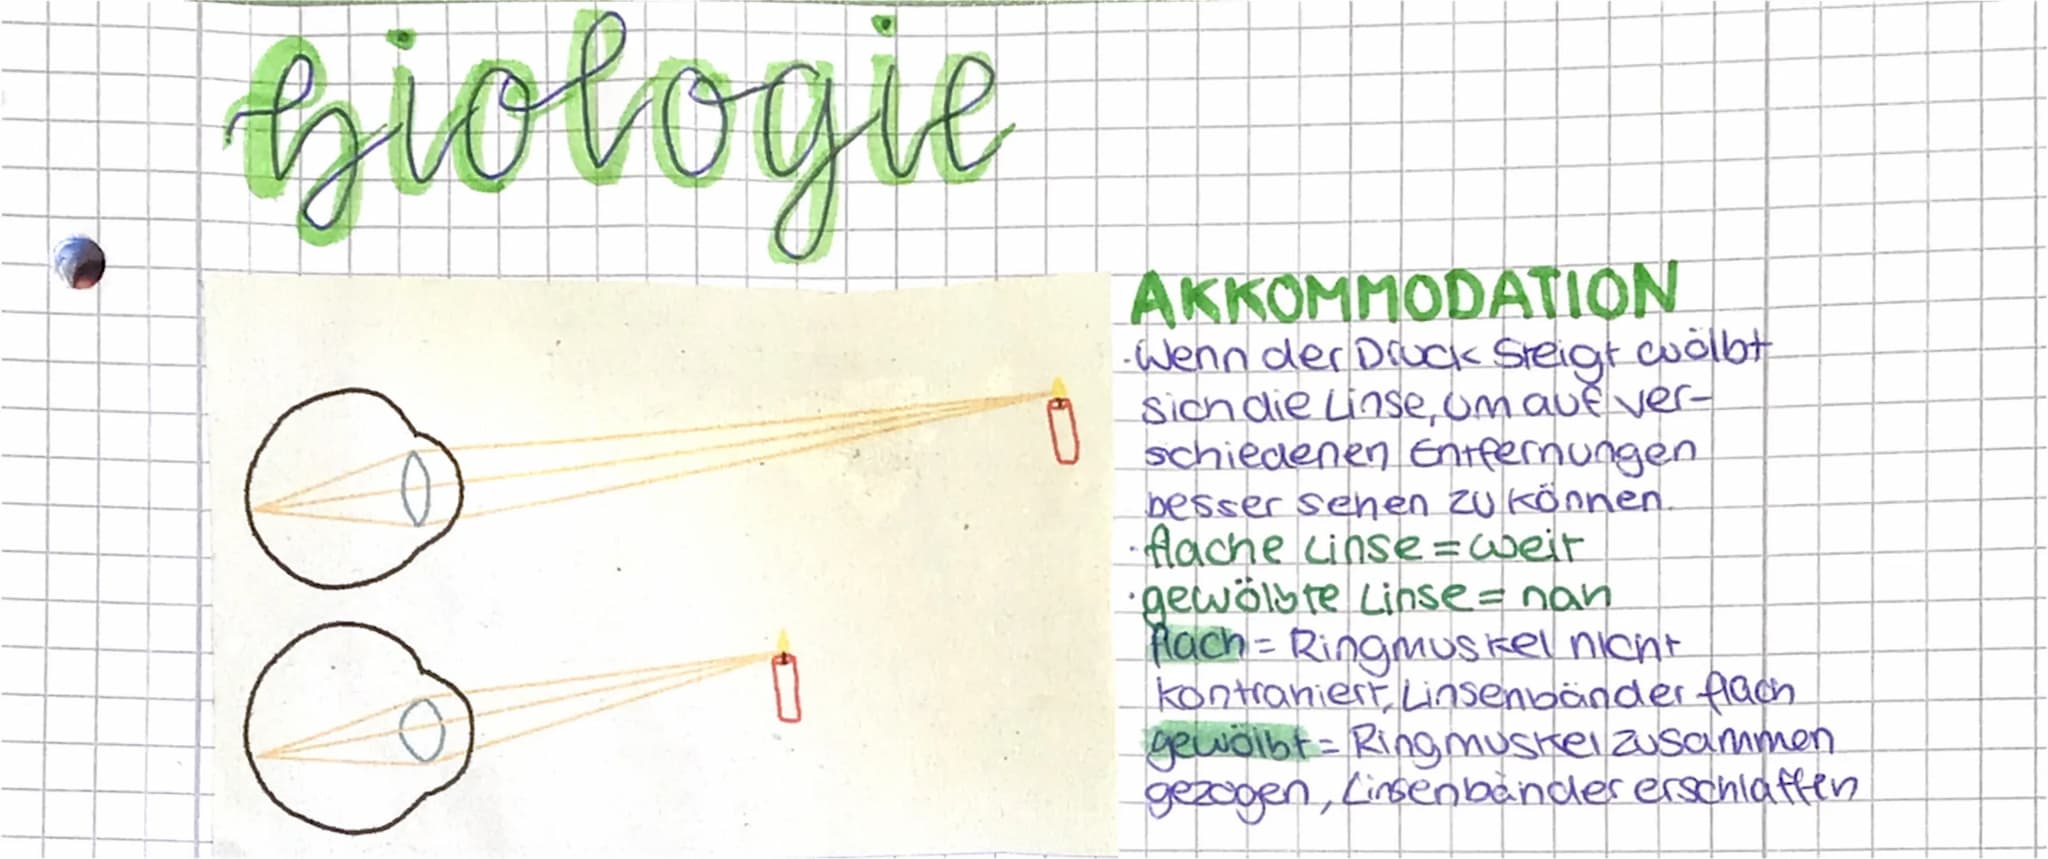 biologie
AKKOMMODATION
· Wenn der Druck steigt wölbt
sich die Linse, um auf ver-
schiedenen Entfernungen
besser sehen zu können.
· flache Linse = weit
· gewölbte Linse = nah
flach = Ringmuskel nicht
kontrahiert, Linsenbänder flach
gewölbt = Ringmuskel zusammen
gezogen, Linsenbänder erschlaffen